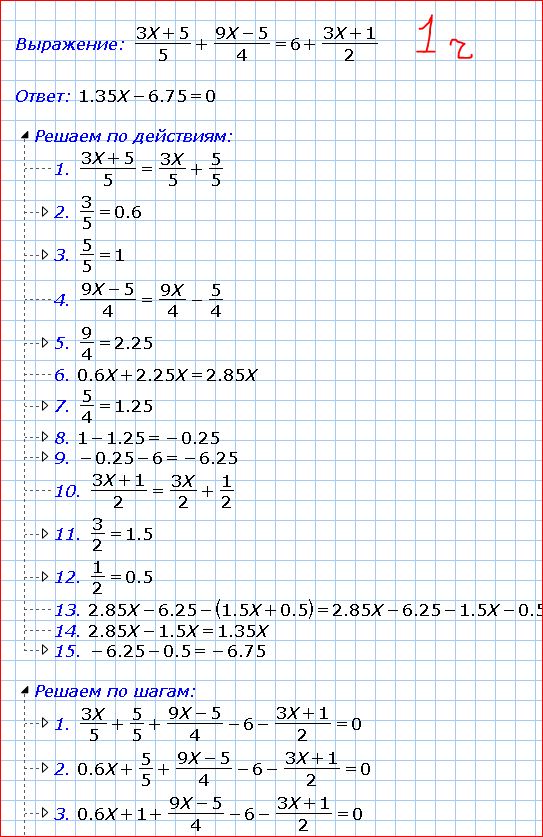 Выражение: (3X+5)/5 + (9X−5)/4 = 6 + (3X+1)/2 1 ч
Ответ: 1.35X−6.75=0
Решаем по действиям:
1. (3X+5)/5 = 3X/5 + 5/5
2. 3/5 = 0.6
3. 5/5 = 1
4. (9X−5)/4 = 9X/4 − 5/4
5. 9/4 = 2.25
6. 0.6X+2.25X=2.85X
7. 5/4 = 1.25
8. 1−1.25=−0.25
9. −0.25−6=−6.25
10. (3X+1)/2 = 3X/2 + 1/2
11. 3/2 = 1.5
12. 1/2 = 0.5
13. 2.85X−6.25−(1.5X+0.5)=2.85X−6.25−1.5X−0.5
14. 2.85X−1.5X=1.35X
15. −6.25−0.5=−6.75
Решаем по шагам:
1. 3X/5 + 5/5 + (9X−5)/4 − 6 − (3X+1)/2 = 0
2. 0.6X + 5/5 + (9X−5)/4 − 6 − (3X+1)/2 = 0
3. 0.6X + 1 + (9X−5)/4 − 6 − (3X+1)/2 = 0